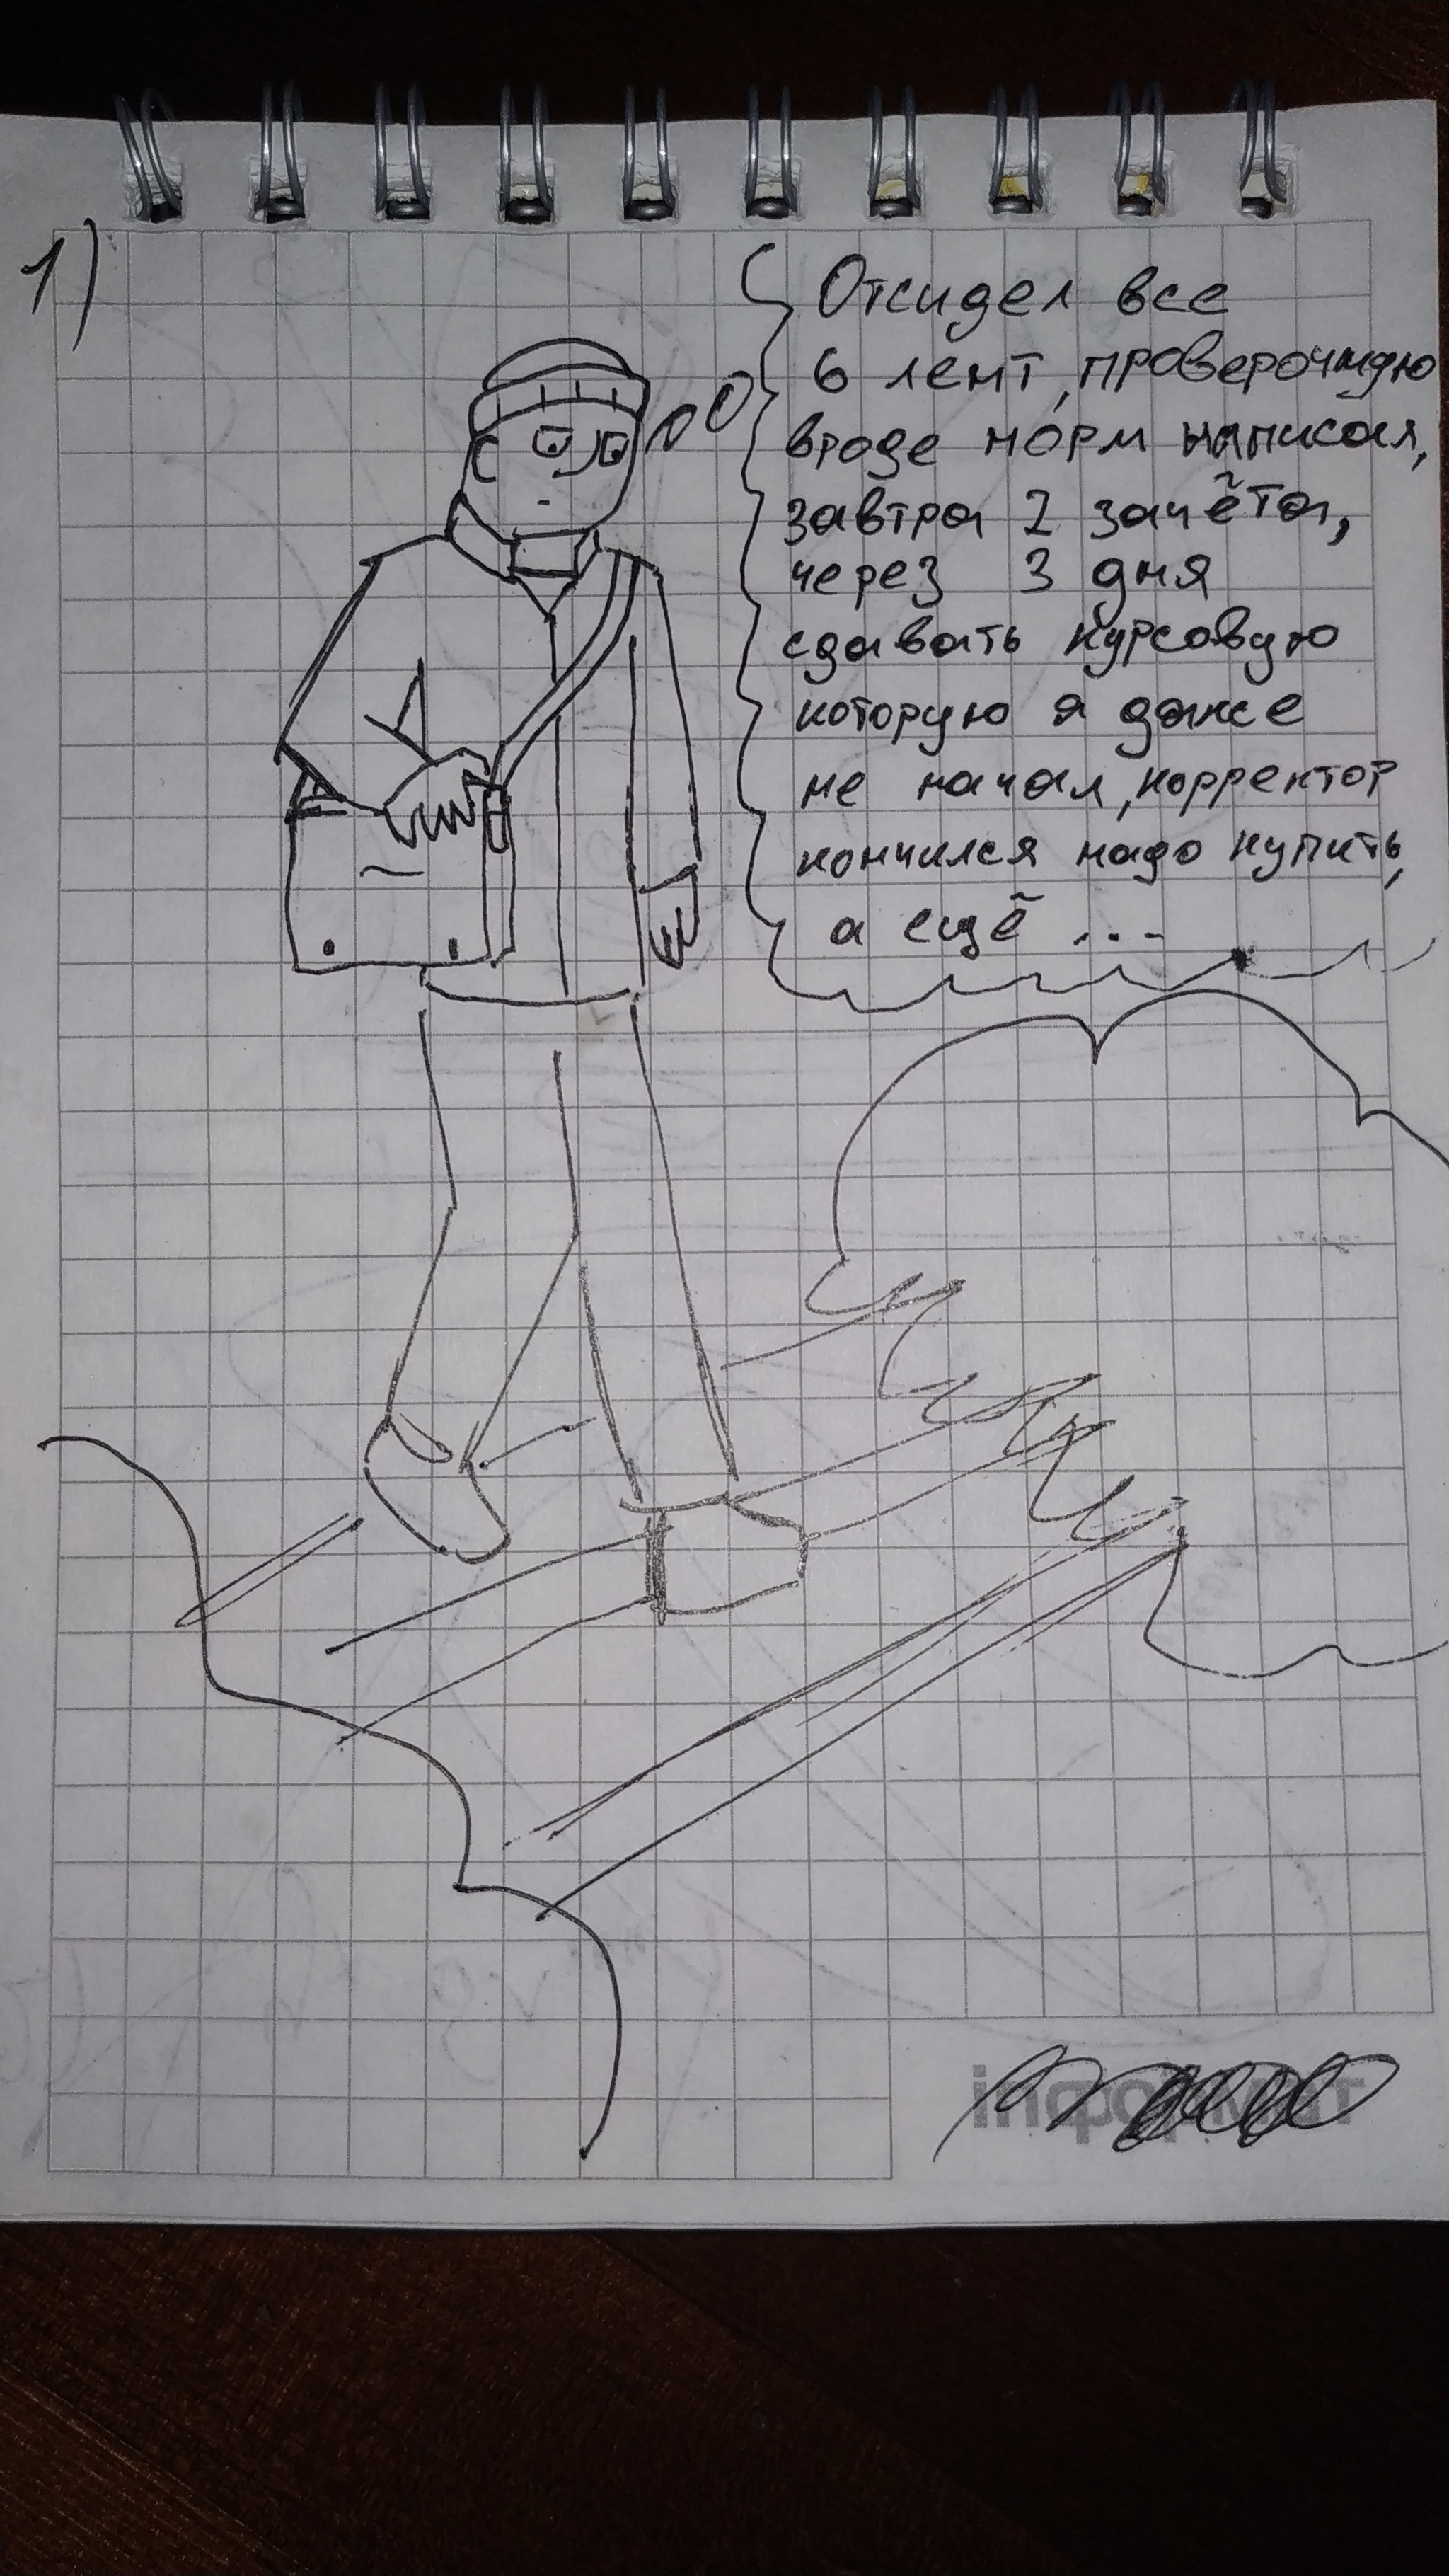 1)
Отсидел все
6 лент, проверочную
вроде норм написал,
завтра 2 зачёта,
через 3 дня
сдавать курсовую
которую я даже
не начал, корректор
кончился надо купить,
а ещё ...